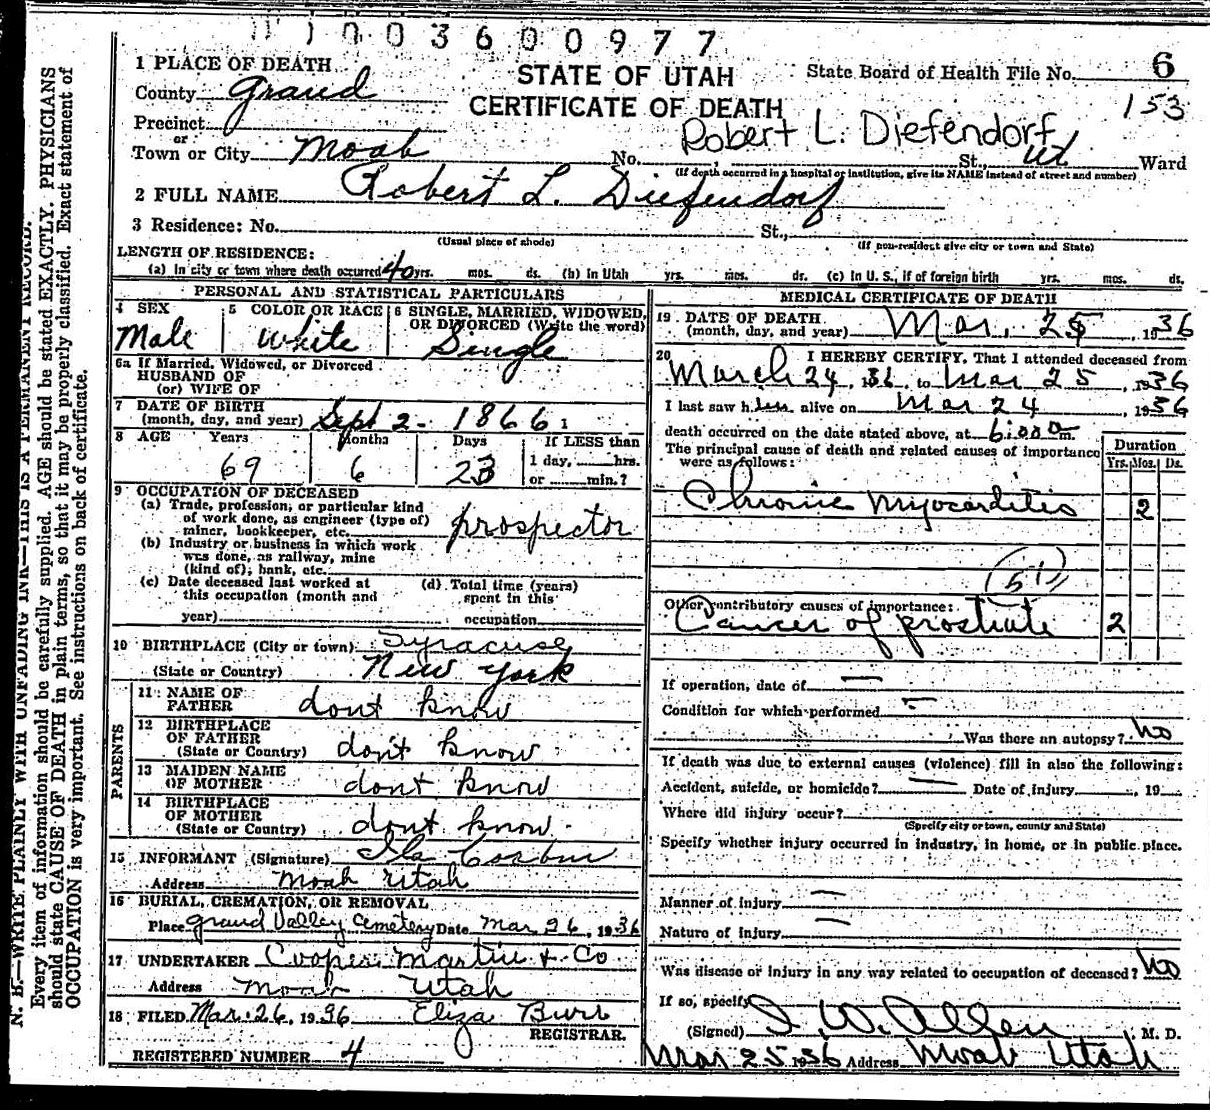 11003600977
1 PLACE OF DEATH
STATE OF UTAH
State Board of Health File No. 6
County Grand
CERTIFICATE OF DEATH
153
Precinct
or
Robert L. Diefendorf
Town or City Moab No. , St., Ut Ward
(If death occurred in a hospital or institution, give its NAME instead of street and number)
2 FULL NAME Robert L. Diefendorf
3 Residence: No. St.,
(Usual place of abode) (If non-resident give city or town and State)
LENGTH OF RESIDENCE:
(a) In city or town where death occurred 40 yrs. mos. ds. (b) In Utah yrs. mos. ds. (c) In U. S., if of foreign birth yrs. mos. ds.
PERSONAL AND STATISTICAL PARTICULARS
4 SEX 5 COLOR OR RACE 6 SINGLE, MARRIED, WIDOWED, OR DIVORCED (Write the word)
Male White Single
6a If Married, Widowed, or Divorced
HUSBAND OF
(or) WIFE OF
7 DATE OF BIRTH
(month, day, and year) Sept 2 - 1866
8 AGE Years Months Days If LESS than
69 6 23 1 day, hrs.
or min.?
9 OCCUPATION OF DECEASED
(a) Trade, profession, or particular kind
of work done, as engineer (type of)
miner, bookkeeper, etc. prospector
(b) Industry or business in which work
was done, as railway, mine
(kind of), bank, etc.
(c) Date deceased last worked at (d) Total time (years)
this occupation (month and spent in this
year) occupation
10 BIRTHPLACE (City or town) Syracuse
(State or Country) New York
PARENTS
11 NAME OF
FATHER dont know
12 BIRTHPLACE
OF FATHER
(State or Country) don't know
13 MAIDEN NAME
OF MOTHER dont know
14 BIRTHPLACE
OF MOTHER
(State or Country) dont know.
15 INFORMANT (Signature) Ila Corbin
Address Moab Utah
16 BURIAL, CREMATION, OR REMOVAL
Place Grand Valley Cemetery Date Mar 26, 1936
17 UNDERTAKER Cooper Martin & Co
Address Moab Utah
18 FILED Mar. 26, 1936 Eliza Burr
REGISTRAR.
REGISTERED NUMBER 4
MEDICAL CERTIFICATE OF DEATH
19 DATE OF DEATH
(month, day, and year) Mar. 25, 1936
20 I HEREBY CERTIFY, That I attended deceased from
March 24, 1936 to Mar 25, 1936
I last saw him alive on Mar 24, 1936
death occurred on the date stated above, at 6:00 a m.
The principal cause of death and related causes of importance
were as follows:
Duration
Yrs. Mos. Ds.
Chronic Myocarditis 2
(51)
Other contributory causes of importance:
Cancer of prostrate 2
If operation, date of —
Condition for which performed —
Was there an autopsy? No
If death was due to external causes (violence) fill in also the following:
Accident, suicide, or homicide? — Date of injury , 19
Where did injury occur?
(Specify city or town, county and State)
Specify whether injury occurred in industry, in home, or in public place.
Manner of injury —
Nature of injury —
Was disease or injury in any way related to occupation of deceased? No
If so, specify
(Signed) I. W. Allen M. D.
Mar 25 1936 Address Moab Utah
N. B.—WRITE PLAINLY WITH UNFADING INK—THIS IS A PERMANENT RECORD.
Every item of information should be carefully supplied. AGE should be stated EXACTLY. PHYSICIANS
should state CAUSE OF DEATH in plain terms, so that it may be properly classified. Exact statement of
OCCUPATION is very important. See instructions on back of certificate.